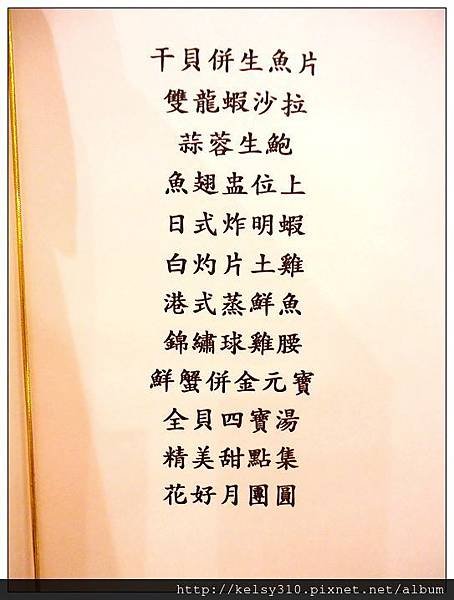 干貝併生魚片
雙龍蝦沙拉
蒜蓉生鮑
魚翅盅位上
日式炸明蝦
白灼片土雞
港式蒸鮮魚
錦繡球雞腰
鮮蟹併金元寶
全貝四寶湯
精美甜點集
花好月團圓
http://kelsy310.pixnet.net/album